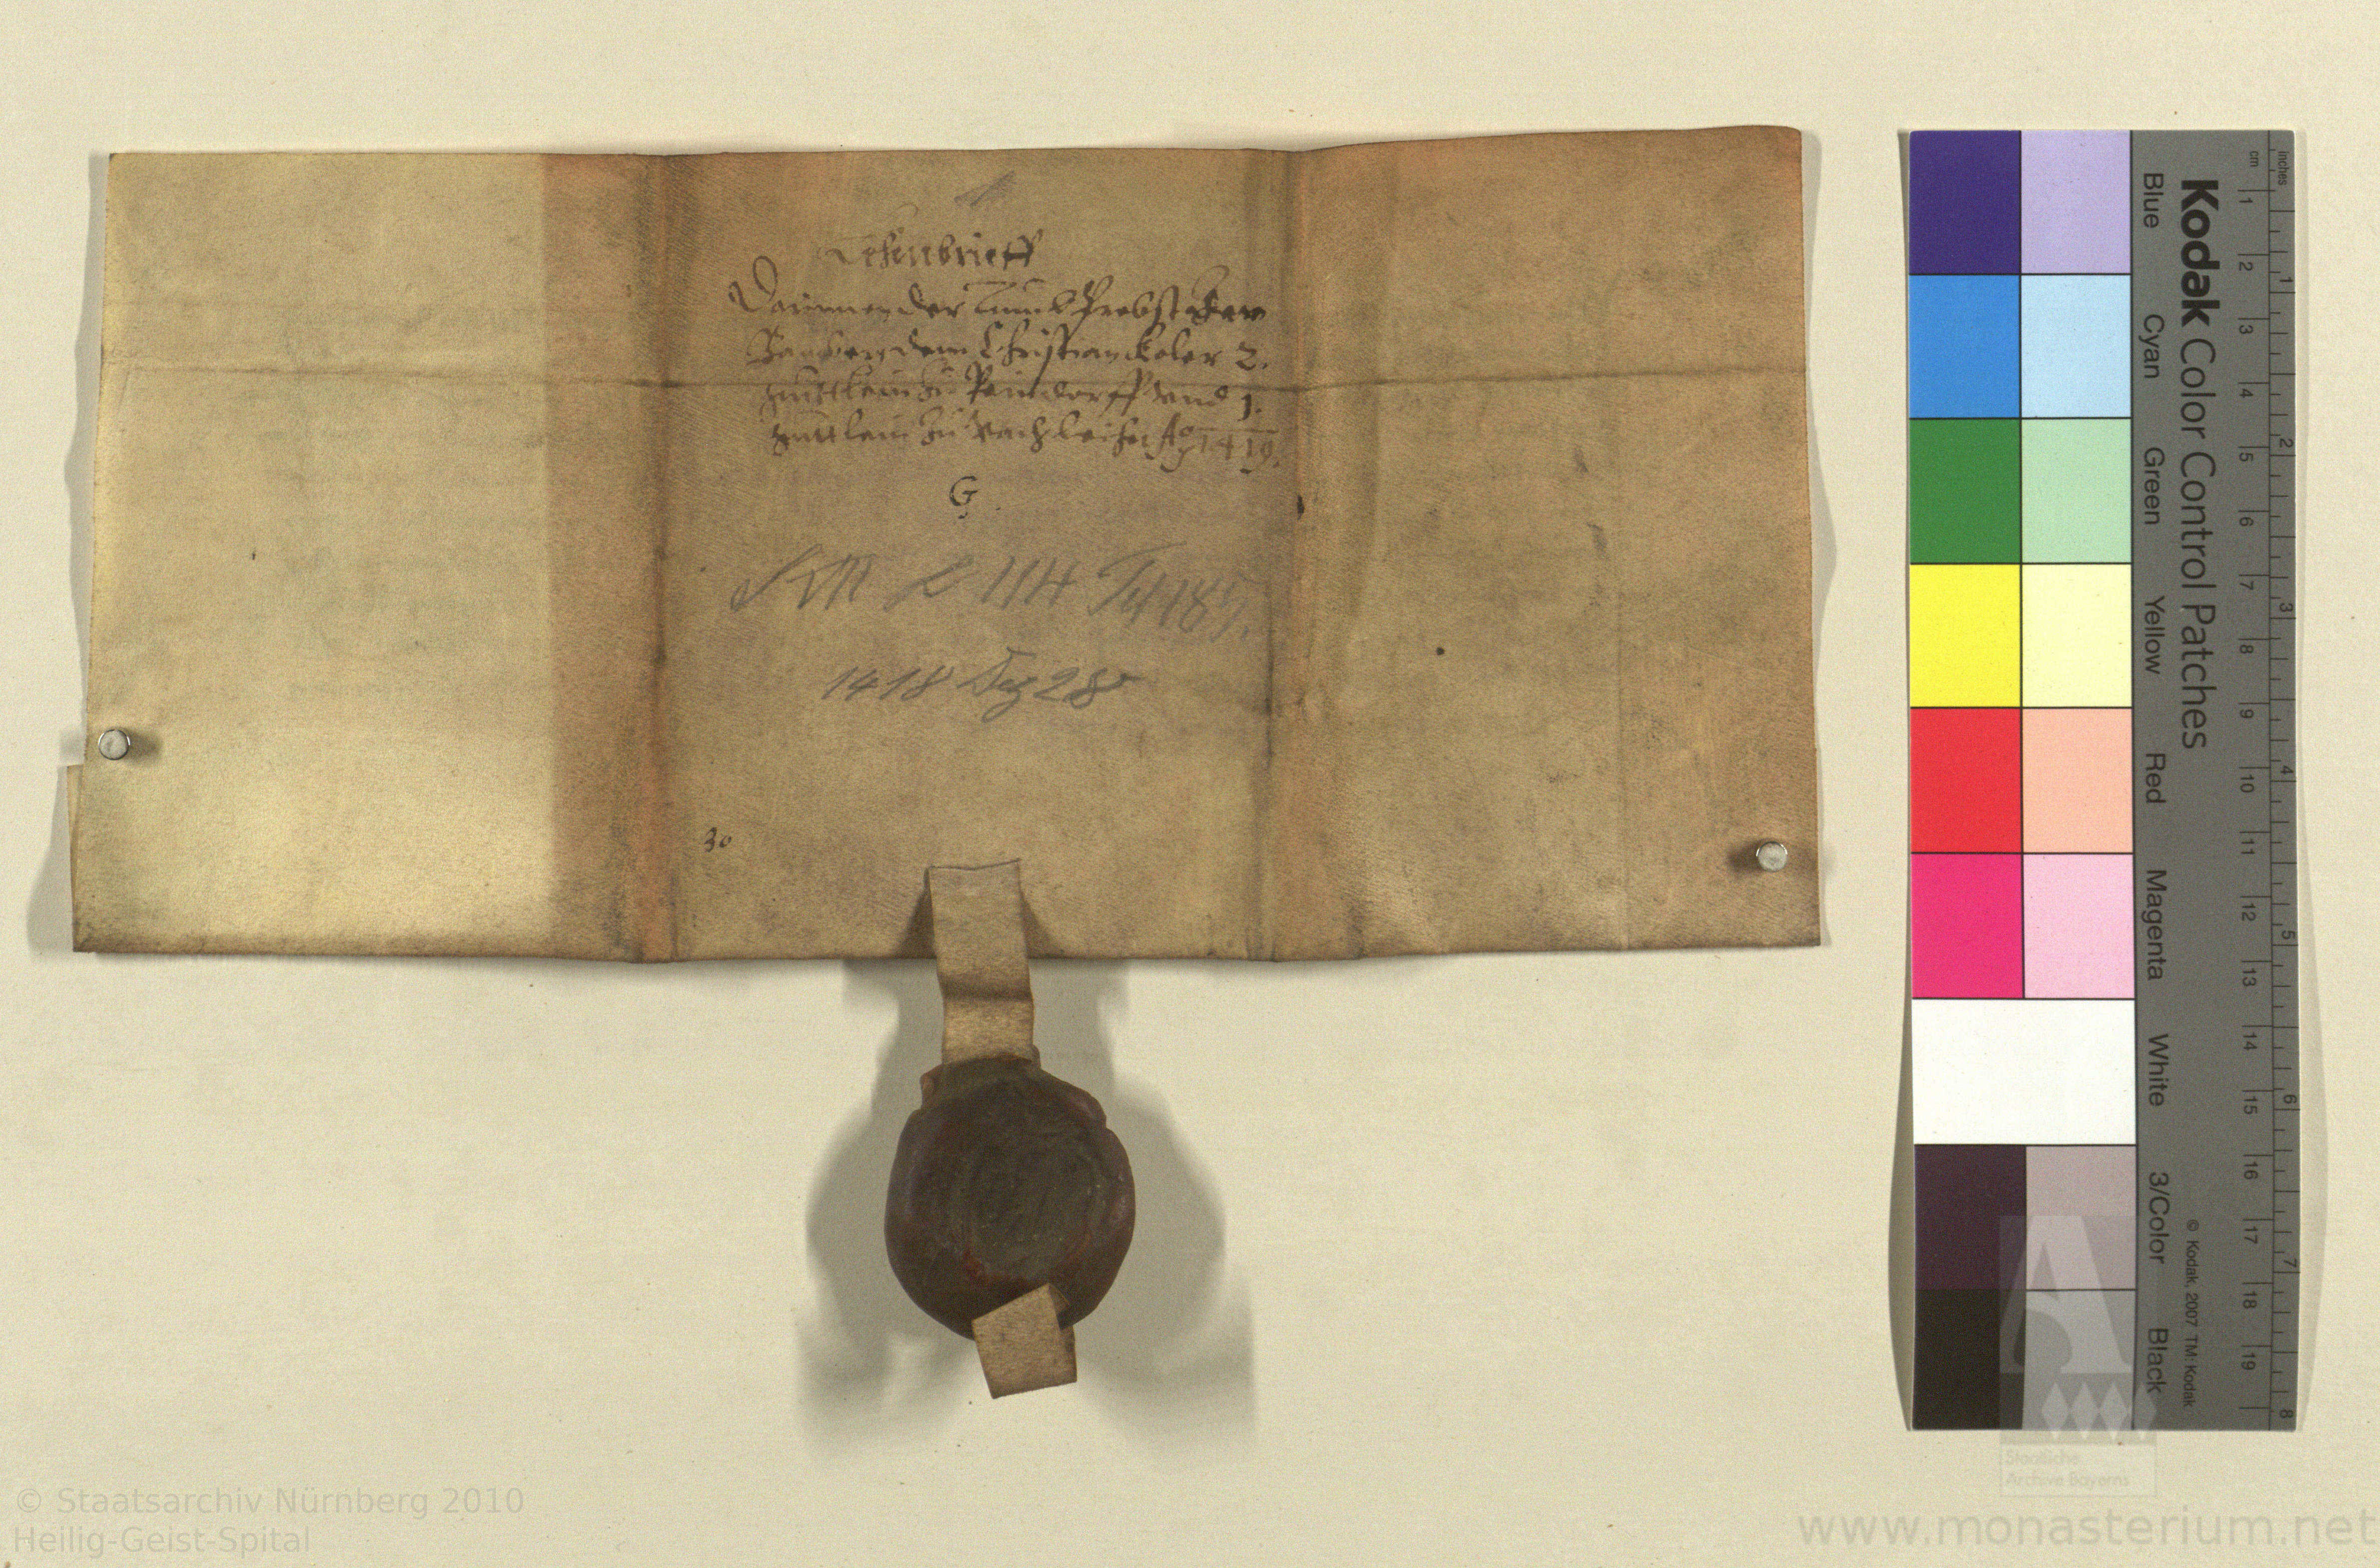 Lehenbrieff
Darinnen der Tumb Probst
Bamberg dem Christian Koler 2.
guttlein zu vnd 1.
guttlein zu Vach leihet Ao 1419.
G.
L 114
1418 Dez 28
30
Kodak Color Control Patches
Blue Cyan Green Yellow Red Magenta White 3/Color Black
© Kodak, 2007 TM: Kodak
cm 1 2 3 4 5 6 7 8 9 10 11 12 13 14 15 16 17 18 19
inches 1 2 3 4 5 6 7 8
Staatliche
Archive Bayerns
© Staatsarchiv Nürnberg 2010
Heilig-Geist-Spital
www.monasterium.net